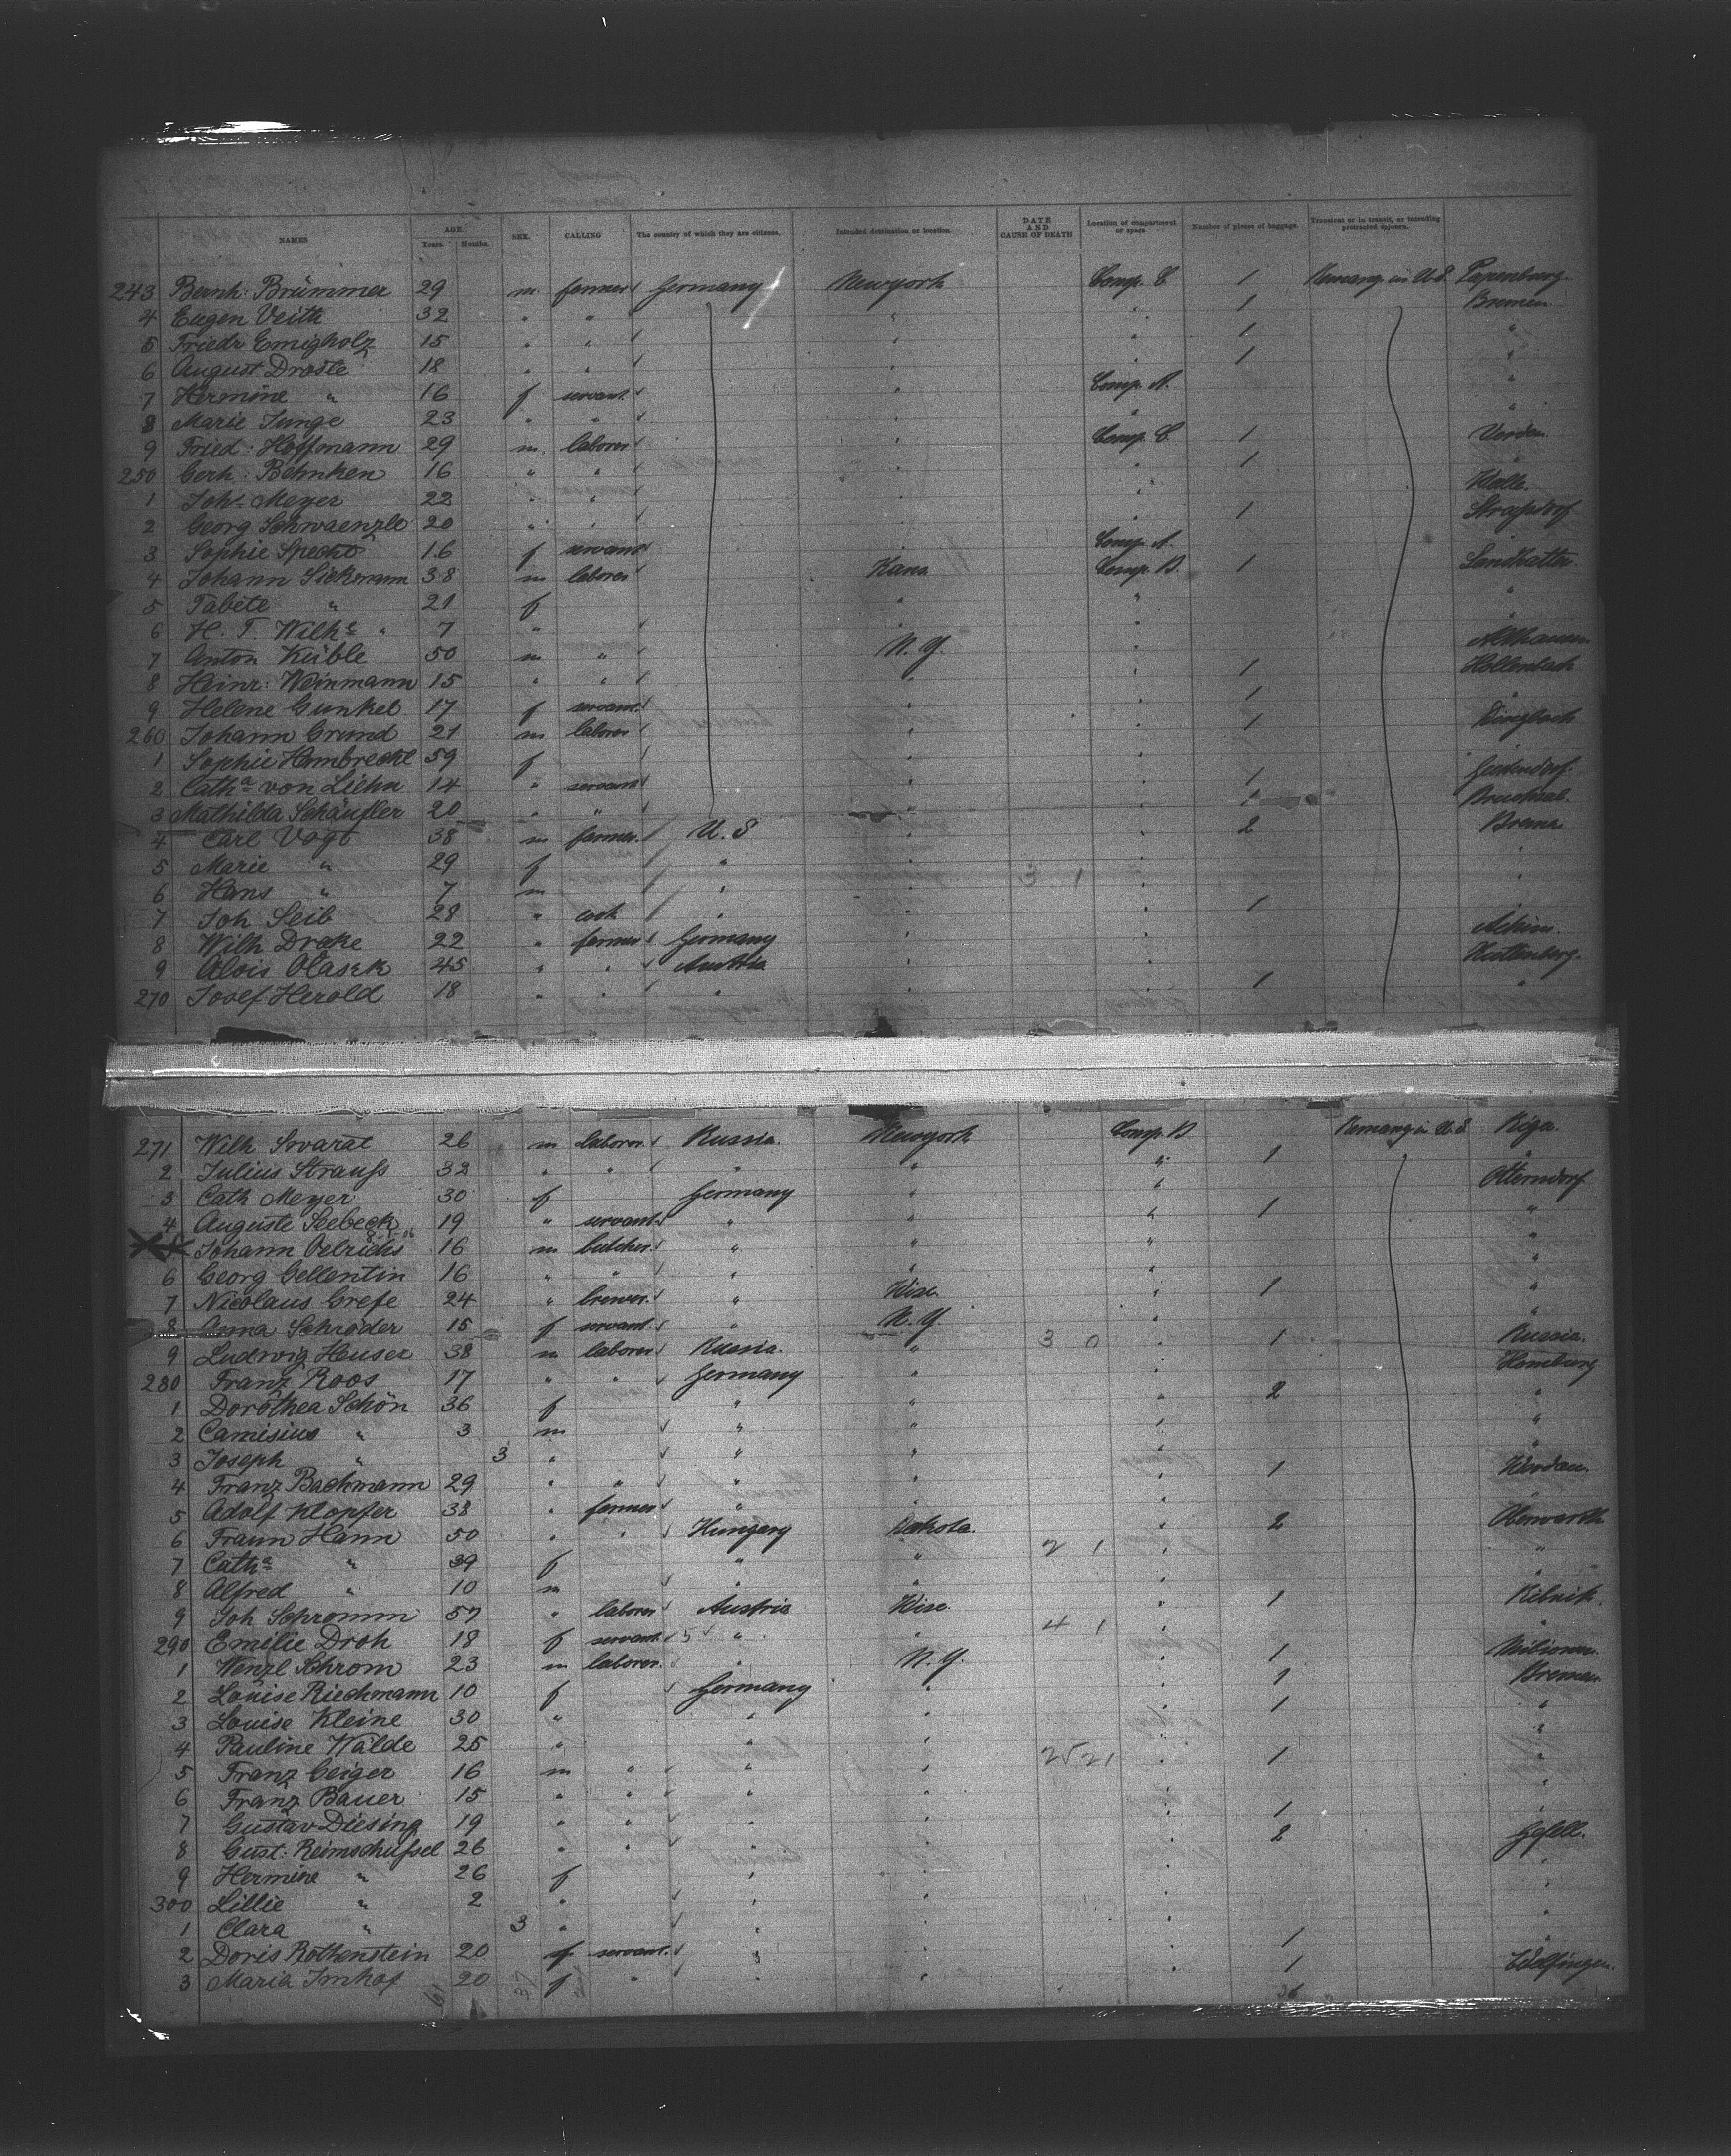 NAMES AGE. Years. Months. SEX. CALLING The country of which they are citizens. Intended destination or location. DATE AND CAUSE OF DEATH Location of compartment or space Number of pieces of baggage. Transient or in transit, or intending protracted sojourn.
243 Bernh: Brümmer 29 m. farmer Germany Newyork Comp. C 1 Remang. in U.S. Papenburg.
4 Eugen Veith 32 " " " " 1 Bremen.
5 Friedr Emigholz 15 " " " " 1 "
6 August Droste 18 " " " " 1 "
7 Hermine " 16 f servant. " Comp. A. "
8 Marie Junge 23 " " " " "
9 Fried: Hoffmann 29 m. laborer " Comp. C. 1 Verden.
250 Gerh: Behnken 16 " " " " 1 "
1 Johs Meyer 22 " " " "
2 Georg Schwaenzle 20 " " " " 1
3 Sophie Specht 16 f servant " Comp. A.
4 Johann Siekmann 38 m laborer Kans. Comp. D. 1 Sandhatten.
5 Tabete " 21 f " " "
6 H. T. Wilhe " 7 " " " "
7 Anton Kübler 50 m " N.Y. "
8 Heinr: Weinmann 15 " " " " 1 Hollenbach
9 Helene Gunkel 17 f servant. " 1 "
260 Johann Grund 21 m laborer " 1
1 Sophie Hambrecht 59 f "
2 Catha von Liehn 14 " servant " 1
3 Mathilda Schäufler 20 " " " 1 Bruchsal.
4 Carl Vogt 38 m farmer. U.S " " 2
5 Marie " 29 f " " " "
6 Hans " 7 m " " 3 1 " "
7 Joh Seib 28 " cook " " " 1
8 Wilh Drake 22 " farmer Germany " " Achim.
9 Alois Olasek 45 " " Austria " " Kuttenberg.
270 Josef Herold 18 " " " " 1 "
271 Wilh Sovarat 26 m laborer. Russia. Newyork Comp. D 1 Remang in U.S Riga.
2 Julius Strauss 32 " " " " " "
3 Cath Meyer 30 f Germany " " Otterndorf
4 Auguste Seebeck 19 " servant. " " " 1 "
5 Johann Oelrichs 16 m butcher. " " " "
6 Georg Gellentin 16 " " " " " "
7 Nicolaus Grefe 24 " brewer. " Wisc. " 1 "
8 Anna Schröder 15 f servant. " N.Y. " "
9 Ludwig Heuser 38 m laborer Russia. " 3 0 " 1 Russia.
280 Franz Roos 17 " " Germany " " Hamburg
1 Dorothea Schön 36 f " " " 2 "
2 Camisius " 3 m " " " "
3 Joseph " 3 " " " " "
4 Franz Bachmann 29 " " " " 1 Werdau.
5 Adolf Klopfer 38 " farmer " " "
6 Fraun Hann 50 " " Hungary Dakota. " 2 Oberwarth
7 Catha " 39 f " " 2 1 " "
8 Alfred " 10 m " " " "
9 Joh Schromm 57 " laborer Austria Wisc. " 1
290 Emilie Droh 18 f servant. 5 " " 4 1 " "
1 Wenzl Schrom 23 m laborer. " N.Y. " 1
2 Louise Riechmann 10 f Germany " " 1 Bremen.
3 Louise Kleine 30 " " " " 1 "
4 Pauline Wälde 25 " " " " "
5 Franz Geiger 16 m " " " 25 21 " 1 "
6 Franz Bauer 15 " " " " " "
7 Gustav Diesing 19 " " " " " 1 "
8 Gust: Reimschüssel 26 " " " " " 2 Gefell.
9 Hermine " 26 f " " " "
300 Lillie " 2 " " " " "
1 Clara " 3 " " " " "
2 Doris Rothenstein 20 f servant. " " " 1 "
3 Maria Imhof 20 f " " " " 1